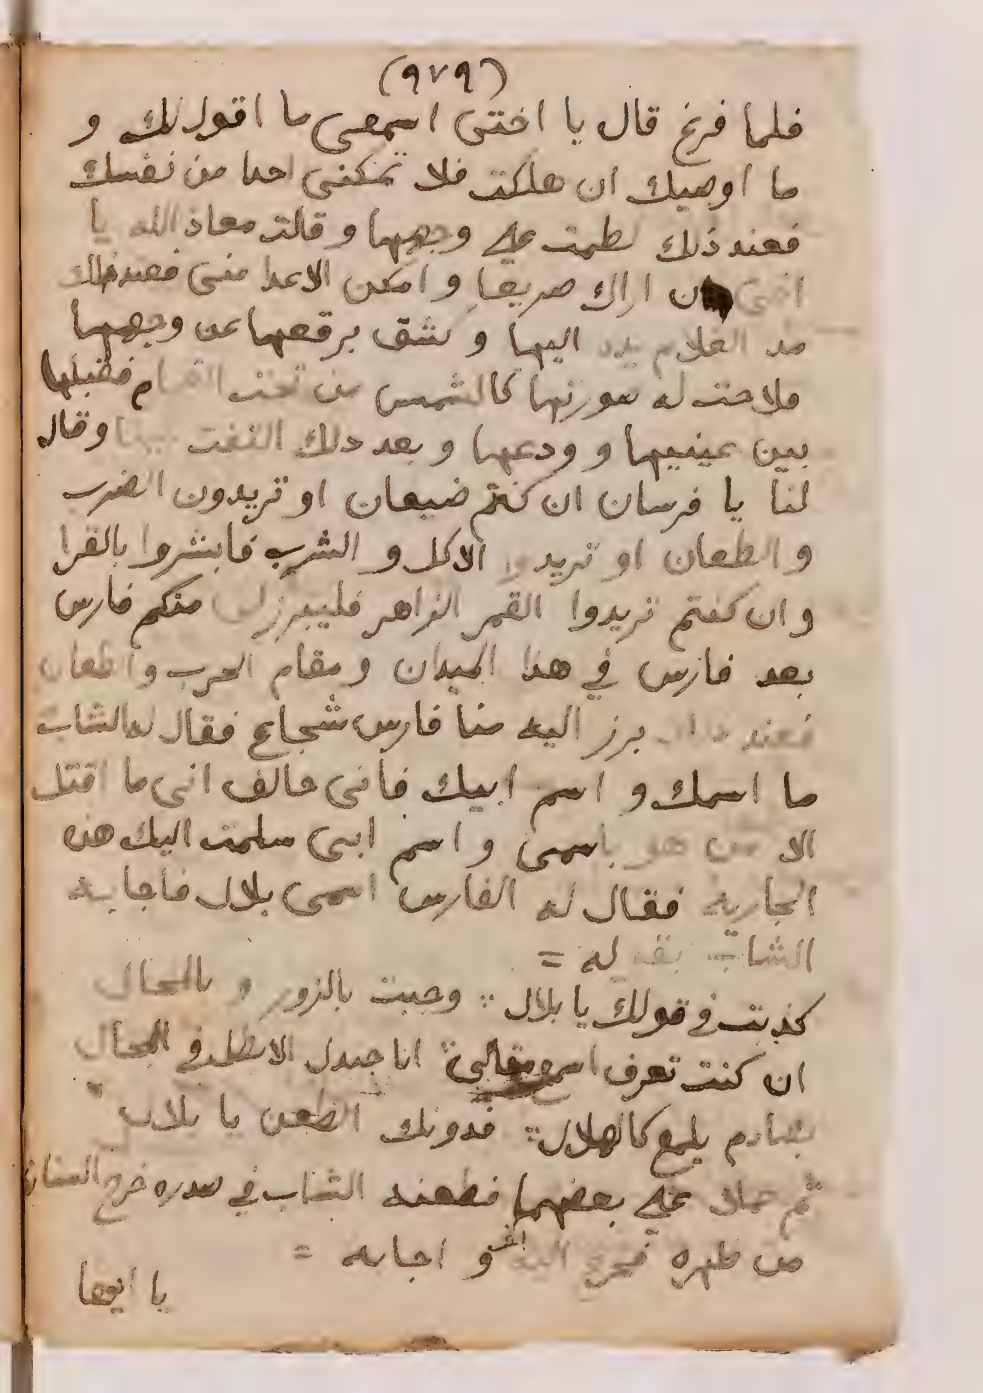 (٩٧٩)
فلما فرغ قال يا اختى اسمعى ما اقول لك و
ما اوصيك ان هلكت فلا تمكنى احدا من نفسك
فعند ذلك لطمت على وجهها و قالت معاذ الله يا
اخى ان اراك صريعا و امكن الاعدا منى فعند ذلك
مد الغلام يده اليها و شق برقعها عن وجهها
فلاحت له صورتها كالشمس من تحت الغمام فقبلها
بين عينيها و ودعها و بعد ذلك التفت الينا وقال
لنا يا فرسان ان كنتم ضيعان او تريدون الضرب
و الطعان او تريدوا الاكل و الشرب فابشروا بالقرا
و ان كنتم تريدوا القمر الزاهر فليبرز لى منكم فارس
بعد فارس في هذا الميدان و مقام الحرب و الطعان
فعند ذلك برز اليه منا فارس شجاع فقال له الشاب
ما اسمك و اسم ابيك فانى حالف انى ما اقتل
الا من هو باسمى و اسم ابى سلمت اليك هذه
الجارية فقال له الفارس اسمى بلال فاجابه
الشاب بقوله =
كذبت في قولك يا بلال ∴ وجيت بالزور و بالمحال
ان كنت تعرف اسمع مقالى ∴ انا جندل الابطال في المجال
بصارم يلمع كالهلال ∴ فدونك الطعن يا بلال
ثم حملا على بعضهما فطعنه الشاب في صدره خرج السنان
من ظهره فخرج اليه اخر و اجابه =
يا ايها